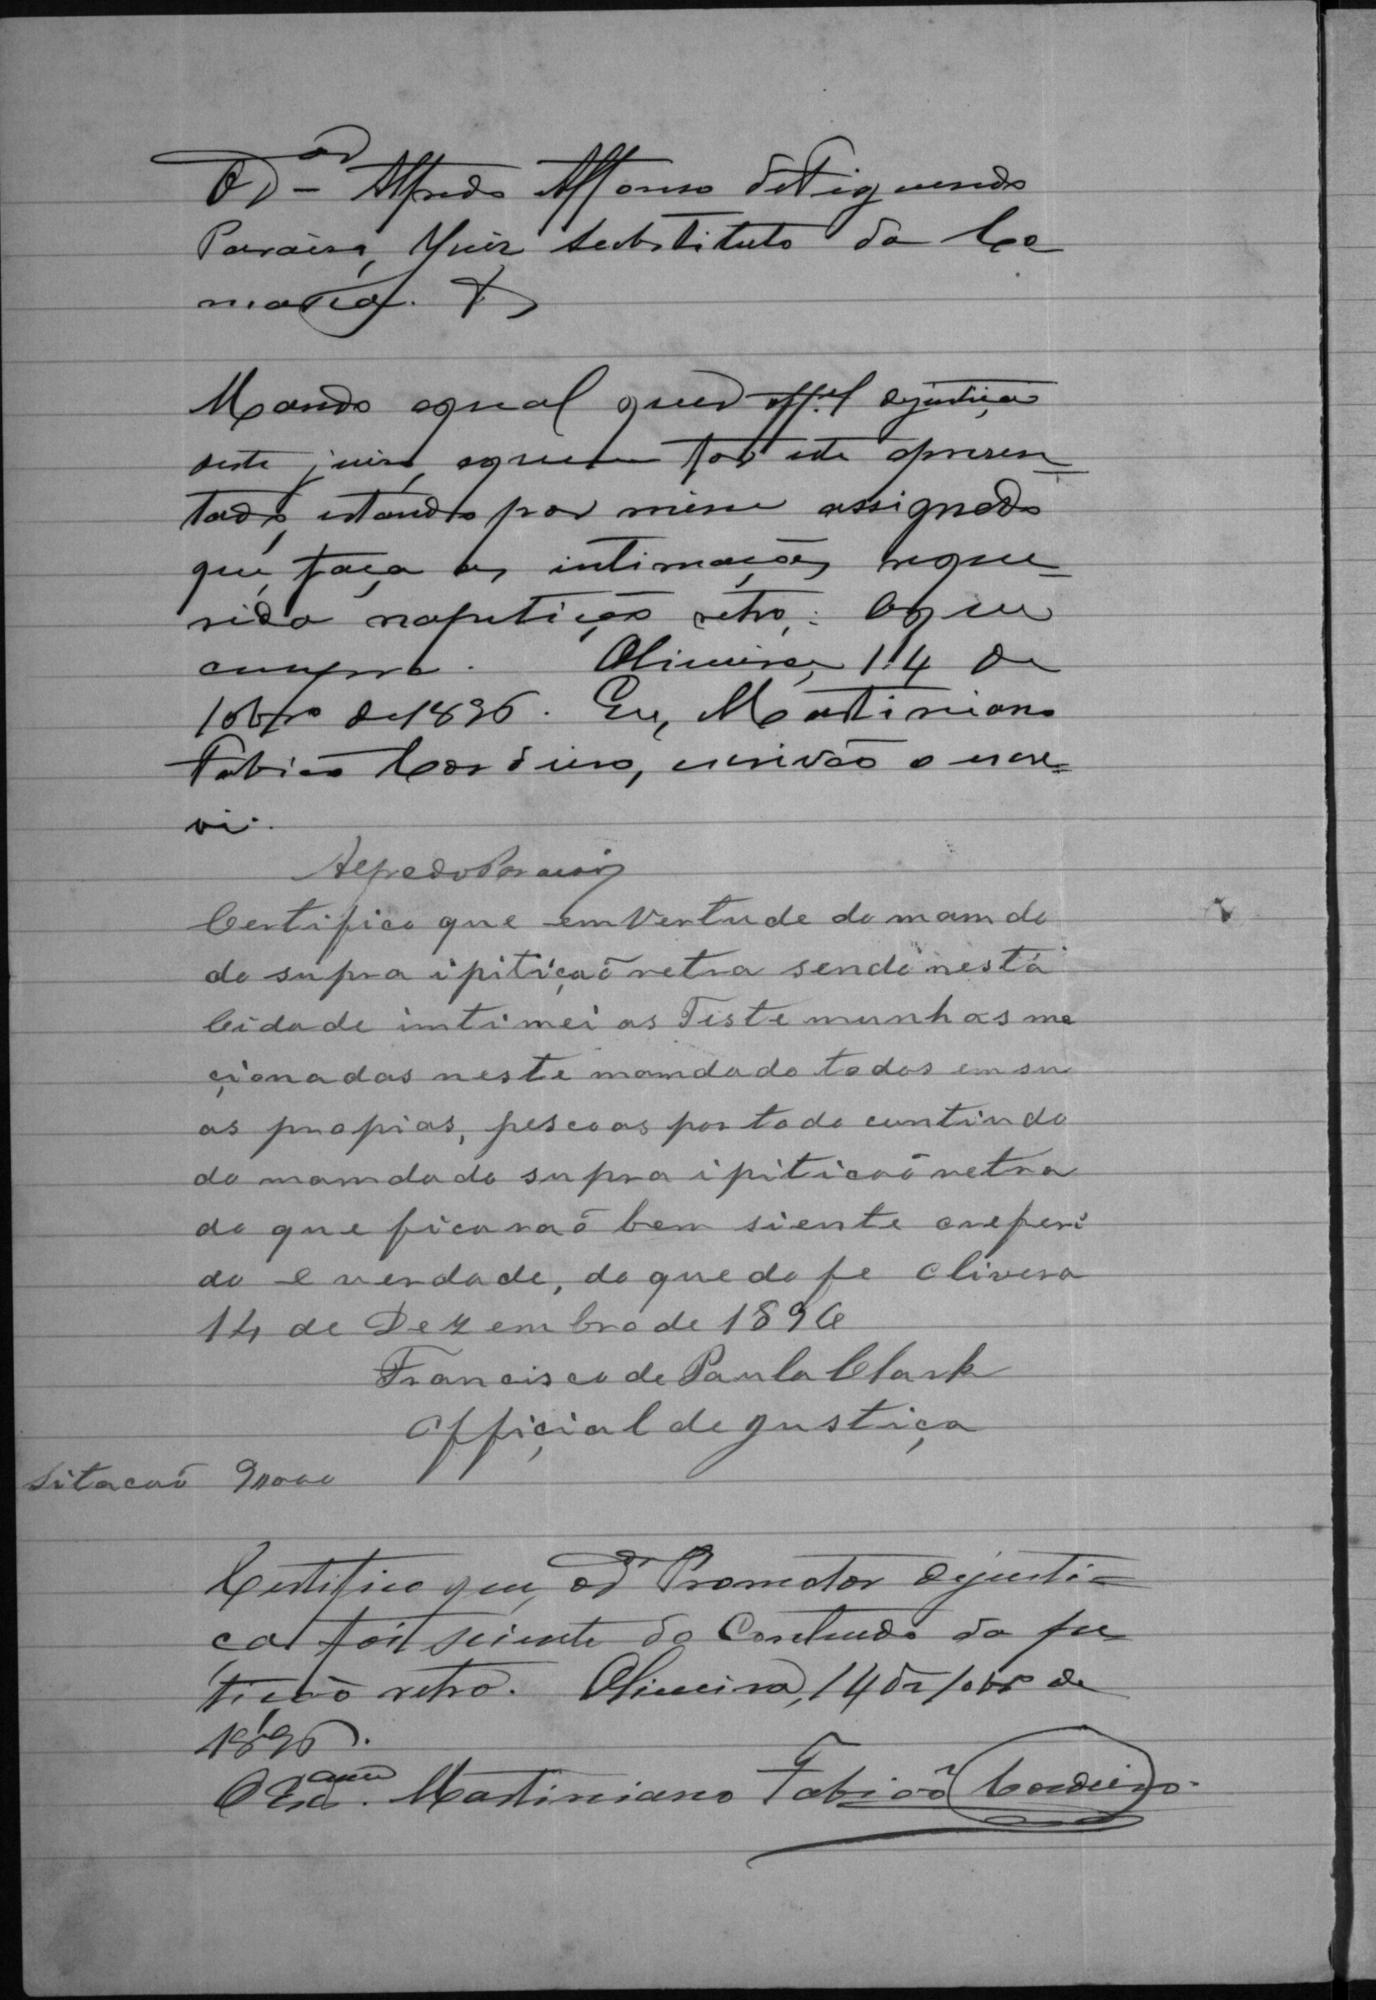 O Dor Alfredo Affonso de Figueredo
Paraiso, Juiz Substituto da Co
marca. &
Mando aqual quer offal dejustiça
deste juiso, aquem for este apresen=
tado, estando por mim assignado
que, faça as intimações reque=
rida napetição retro; Oque
cumpra. Oliveira, 14 de
10bro de 1896. Eu, Martiniano
Fabião Cordeiro, escrivão o escre=
vi.
Alfredo Paraiso
Certifico que em Vertude do mamdo
do supra i pitiçaõ retra sendo nesta
Cidade imtimei as Testemunhas me
çionadas neste mamdado todos em su
as propias, pescoas por todo contindo
do mamdado supra i piticaõ retra
do que ficaraõ bem siente oreferi
do e verdade, do que do fe Olivera
14 de Dezembro de 1896
Francisco de Paula Clark
Offiçial de Justiça
Sitacaõ 9000
Certifico que, o Dr Promotor dejusti=
ça foi sciente do Conteudo da pe
tição retro. Oliveira, 14 de 10bro de
1896.
O Escam. Martiniano Fabião Cordeiro.